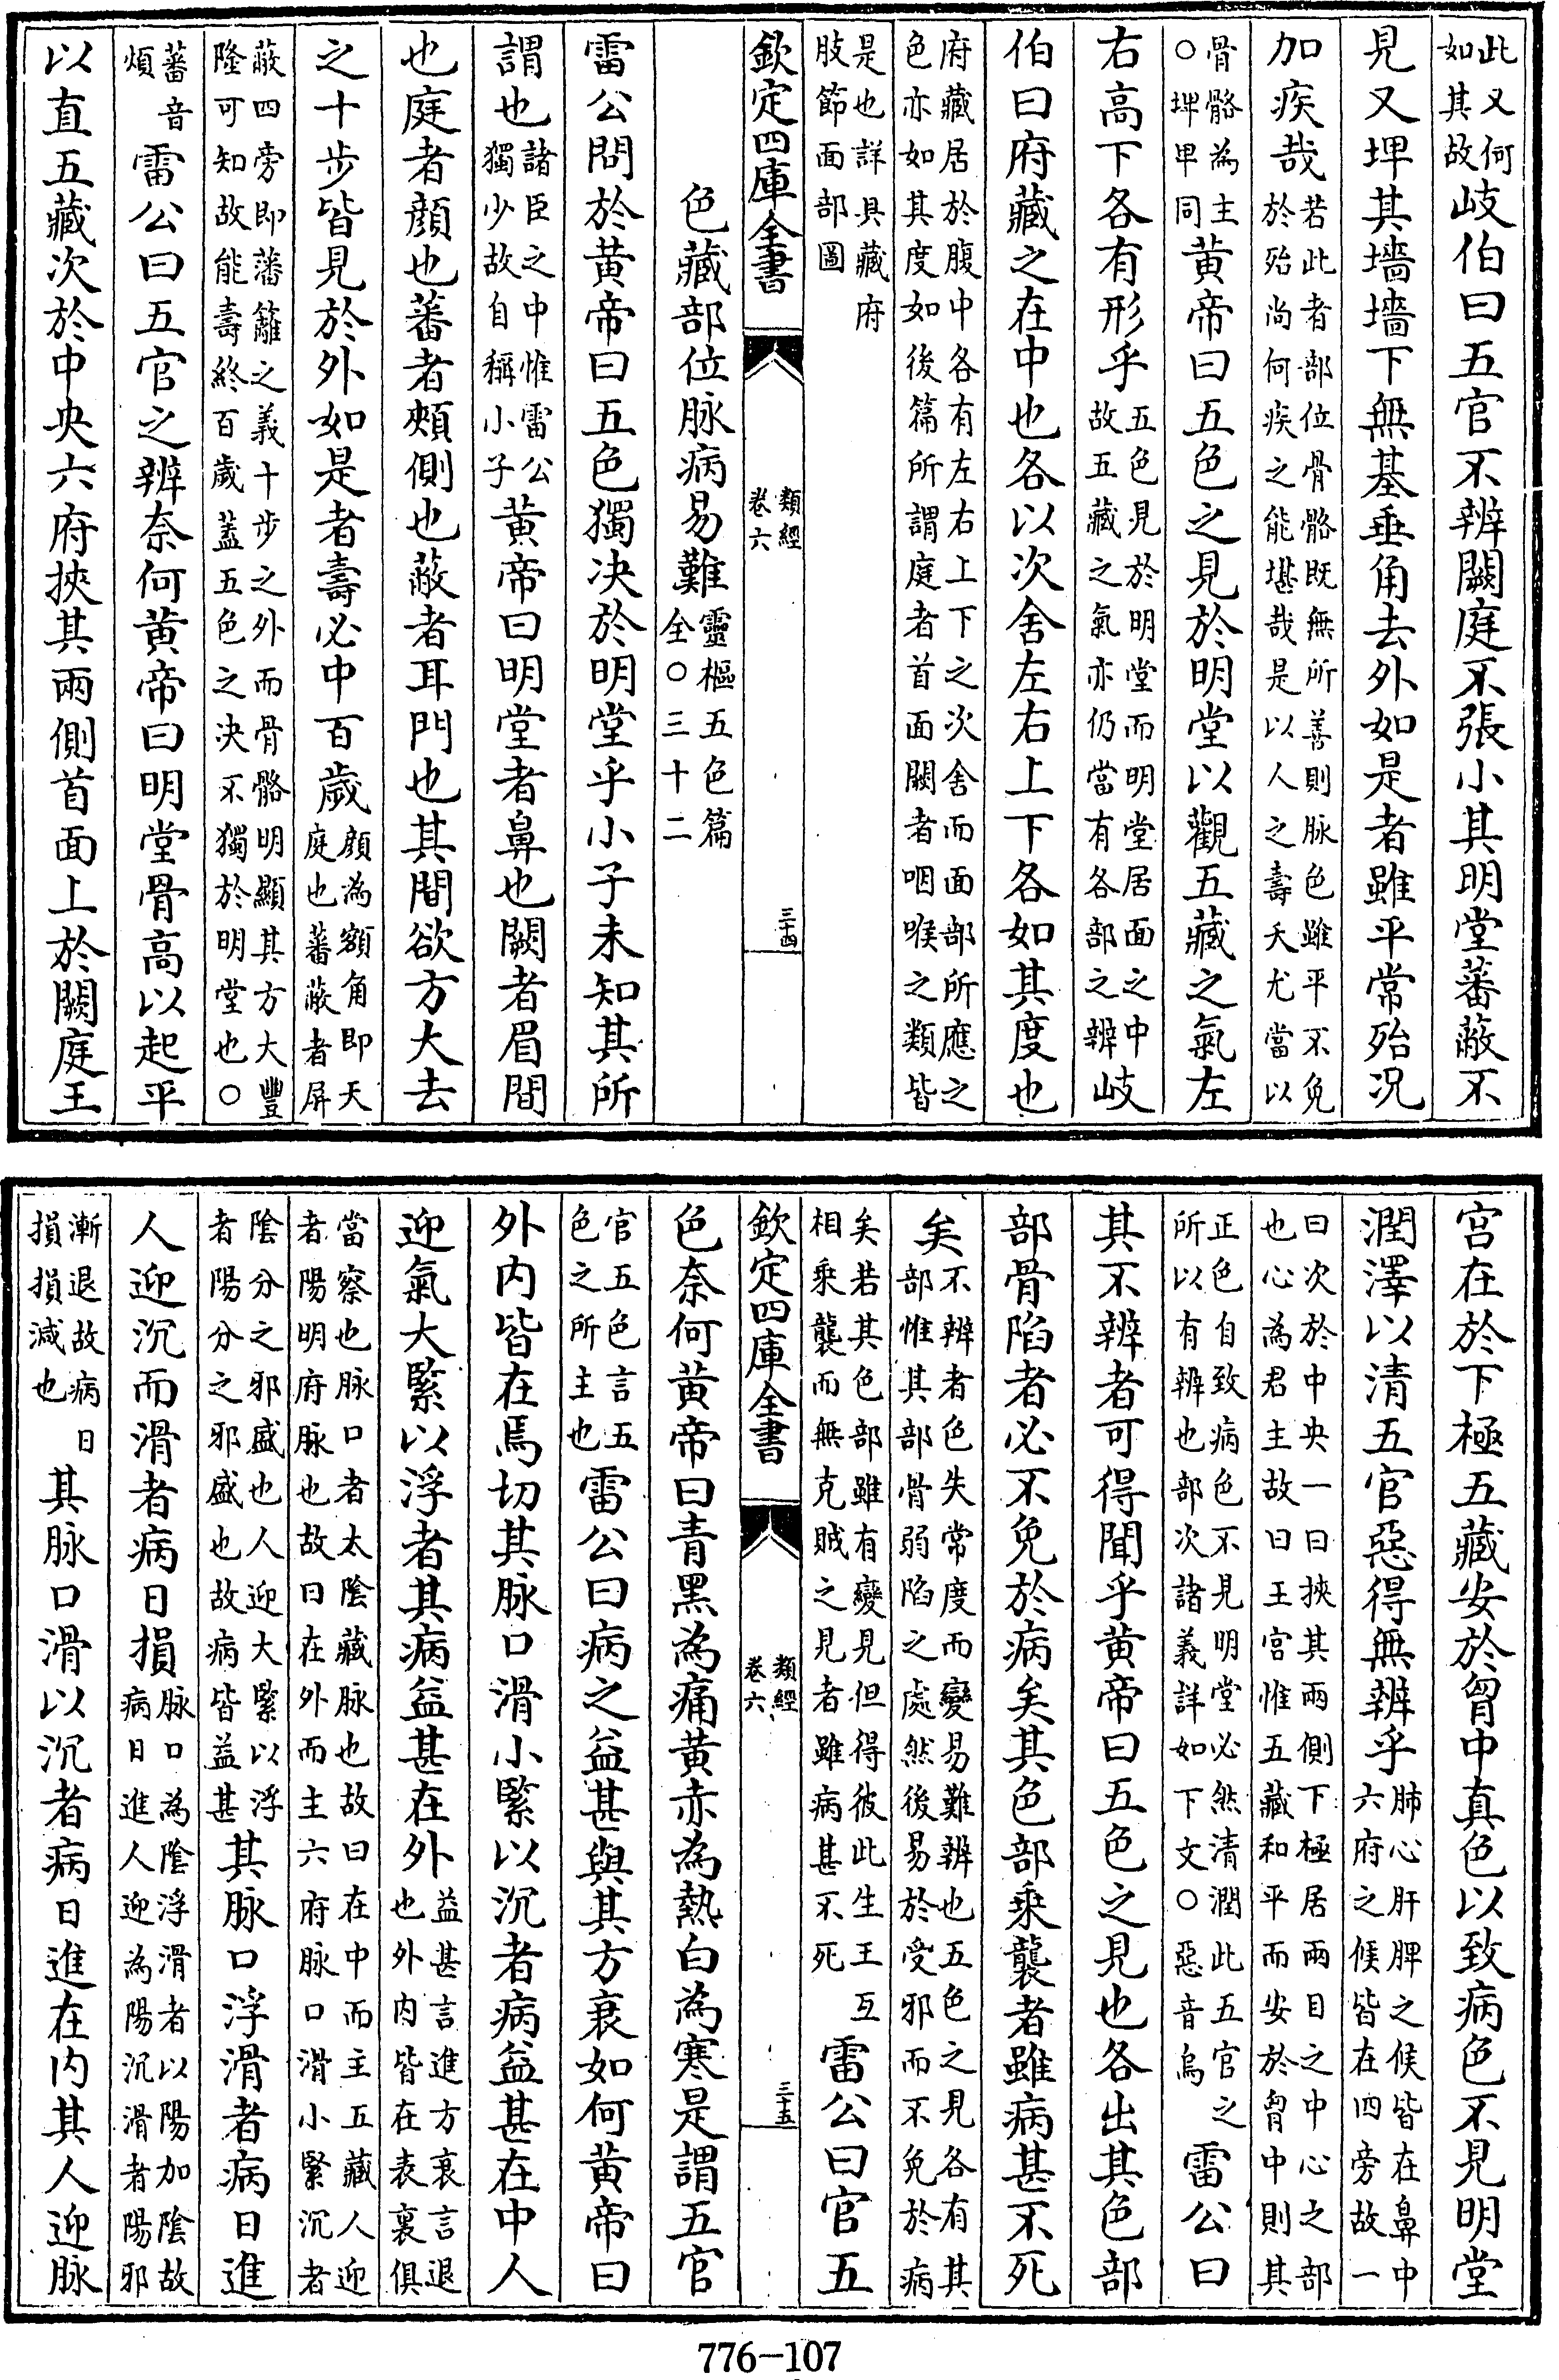 此又何如其故岐伯曰五官不辨闕庭不張小其明堂蕃蔽不
見又埤其墻墻下無基垂角去外如是者雖平常殆况
加疾哉若此者部位骨骼既無所善則脉色雖平不免於殆尚何疾之能堪哉是以人之壽夭尤當以
骨骼為主○埤卑同黄帝曰五色之見於明堂以觀五藏之氣左
右高下各有形乎五色見於明堂而明堂居面之中故五藏之氣亦仍當有各部之辨岐
伯曰府藏之在中也各以次舍左右上下各如其度也
府藏居於腹中各有左右上下之次舍而面部所應之色亦如其度如後篇所謂庭者首面闕者咽喉之類皆
是也詳具藏府肢節面部圖
欽定四庫全書 類經卷六 三十四
色藏部位脉病易難靈樞五色篇全○三十二
雷公問於黄帝曰五色獨决於明堂乎小子未知其所
謂也諸臣之中惟雷公獨少故自稱小子黄帝曰明堂者鼻也闕者眉間
也庭者顔也蕃者頰側也蔽者耳門也其間欲方大去
之十步皆見於外如是者壽必中百歲顔為額角即天庭也蕃蔽者屏
蔽四旁即藩籬之義十步之外而骨骼明顯其方大豐隆可知故能壽終百歲蓋五色之决不獨於明堂也○
蕃音煩雷公曰五官之辨奈何黄帝曰明堂骨高以起平
以直五藏次於中央六府挾其兩側首面上於闕庭王
宫在於下極五藏安於胷中真色以致病色不見明堂
潤澤以清五官惡得無辨乎肺心肝脾之候皆在鼻中六府之候皆在四旁故一
曰次於中央一曰挾其兩側下極居兩目之中心之部也心為君主故曰王宫惟五藏和平而安於胷中則其
正色自致病色不見明堂必然清潤此五官之所以有辨也部次諸義詳如下文○惡音烏雷公曰
其不辨者可得聞乎黄帝曰五色之見也各出其色部
部骨陷者必不免於病矣其色部乘襲者雖病甚不死
矣不辨者色失常度而變易難辨也五色之見各有其部惟其部骨弱陷之處然後易於受邪而不免於病
矣若其色部雖有變見但得彼此生王互相乘襲而無克賊之見者雖病甚不死雷公曰官五
欽定四庫全書 類經卷六 三十五
色奈何黄帝曰青黑為痛黄赤為熱白為寒是謂五官
官五色言五色之所主也雷公曰病之益甚與其方衰如何黄帝曰
外内皆在焉切其脉口滑小緊以沉者病益甚在中人
迎氣大緊以浮者其病益甚在外益甚言進方衰言退也外内皆在表裏俱
當察也脉口者太隂藏脉也故曰在中而主五藏人迎者陽明府脉也故曰在外而主六府脉口滑小緊沉者
隂分之邪盛也人迎大緊以浮者陽分之邪盛也故病皆益甚其脉口浮滑者病日進
人迎沉而滑者病日損脉口為隂浮滑者以陽加隂故病日進人迎為陽沉滑者陽邪
漸退故病日損損減也其脉口滑以沉者病日進在内其人迎脉
776-107